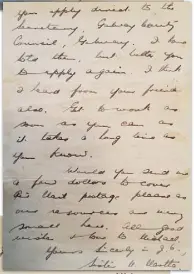 you apply direct to the
Secretary, Galway County
Council, Galway. I have
told them, but better you
to apply again. I think
I had from your friend
also. Get to work as
soon as you can as
it takes a long time as
you know.
Would you send us
a few dollars to cover
postage please as
our resources are very
small here. All good
wishes to
Yours sincerely in J.C.
Sister